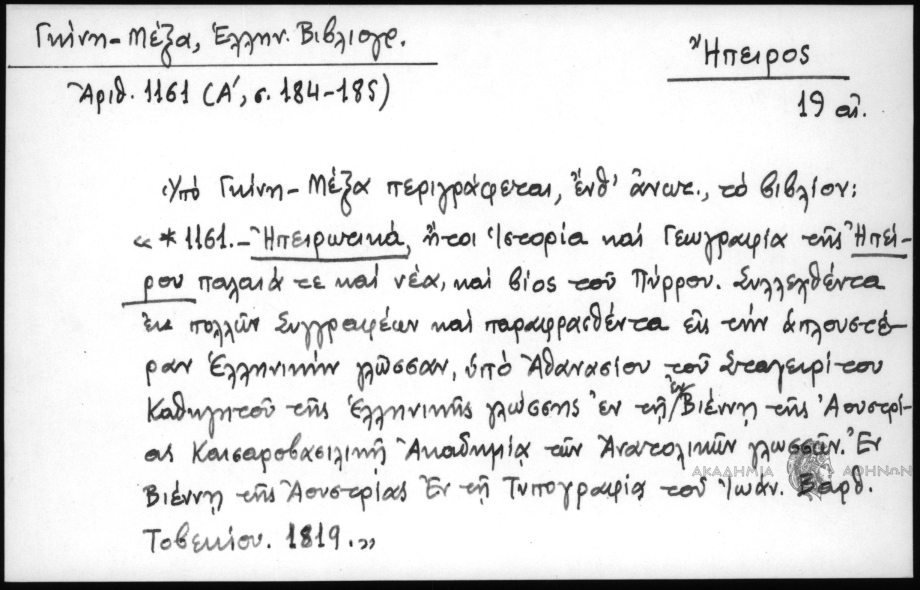 Γκίνη-Μέζα, Ἑλλην. Βιβλιογρ.
Ἀριθ. 1161 (Α΄, σ. 184-185)
Ἤπειρος
19 αἰ.
Ὑπὸ Γκίνη-Μέζα περιγράφεται, ἔνθ' ἀνωτ., τὸ βιβλίον:
«*1161.-Ἠπειρωτικά, ἤτοι Ἱστορία καὶ Γεωγραφία τῆς Ἠπεί-
ρου παλαιά τε καὶ νέα, καὶ βίος τοῦ Πύρρου. Συλλεχθέντα
ἐκ πολλῶν Συγγραφέων καὶ παραφρασθέντα εἰς τὴν ἁπλουστέ-
ραν Ἑλληνικὴν γλῶσσαν, ὑπὸ Ἀθανασίου τοῦ Σταγειρίτου
Καθηγητοῦ τῆς Ἑλληνικῆς γλώσσης ἐν τῇ ἐν Βιέννῃ τῆς Ἀουστρί-
ας Καισαροβασιλικῇ Ἀκαδημίᾳ τῶν Ἀνατολικῶν γλωσσῶν. Ἐν
Βιέννῃ τῆς Ἀουστρίας Ἐν τῇ Τυπογραφίᾳ τοῦ Ἰωάν. Βαρθ.
Τσβεκίου. 1819.»
ΑΚΑΔΗΜΙΑ ΑΘΗΝΩΝ